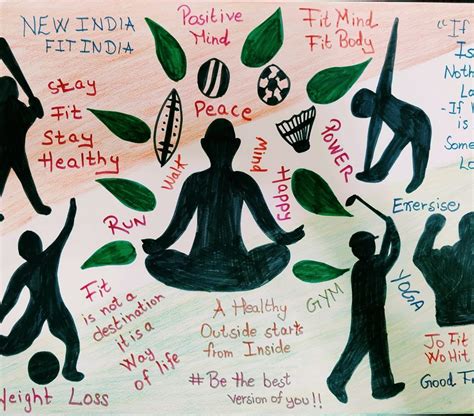 NEW INDIA
FIT INDIA
Positive
Mind
Fit Mind
Fit Body
"If
Is
Noth
Lo
-If W
is
Some
Lo
Stay
Fit
Stay
Healthy
Peace
Walk
Mind
Happy
POWER
RUN
Exercise
GYM
YOGA
Fit
is not a
destination
it is a
Way
of life
A Healthy
Outside starts
from Inside
# Be the best
version of you!!
Weight Loss
Jo Fit
Wo Hit
Good F